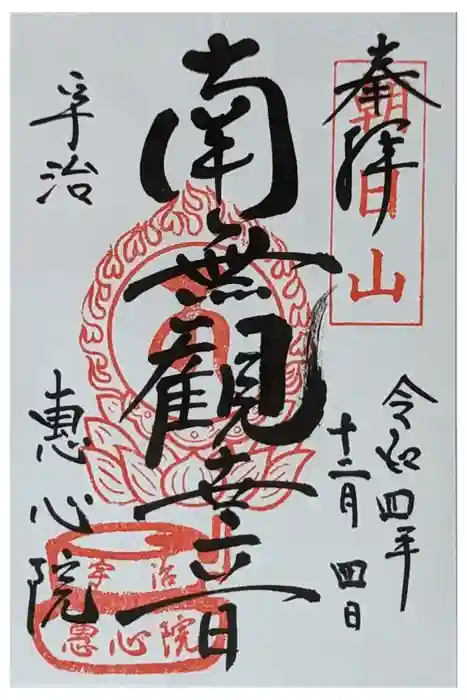 奉拝
朝日山
令和四年
十二月四日
南無観世音
宇治
恵心院
宇治
恵心院